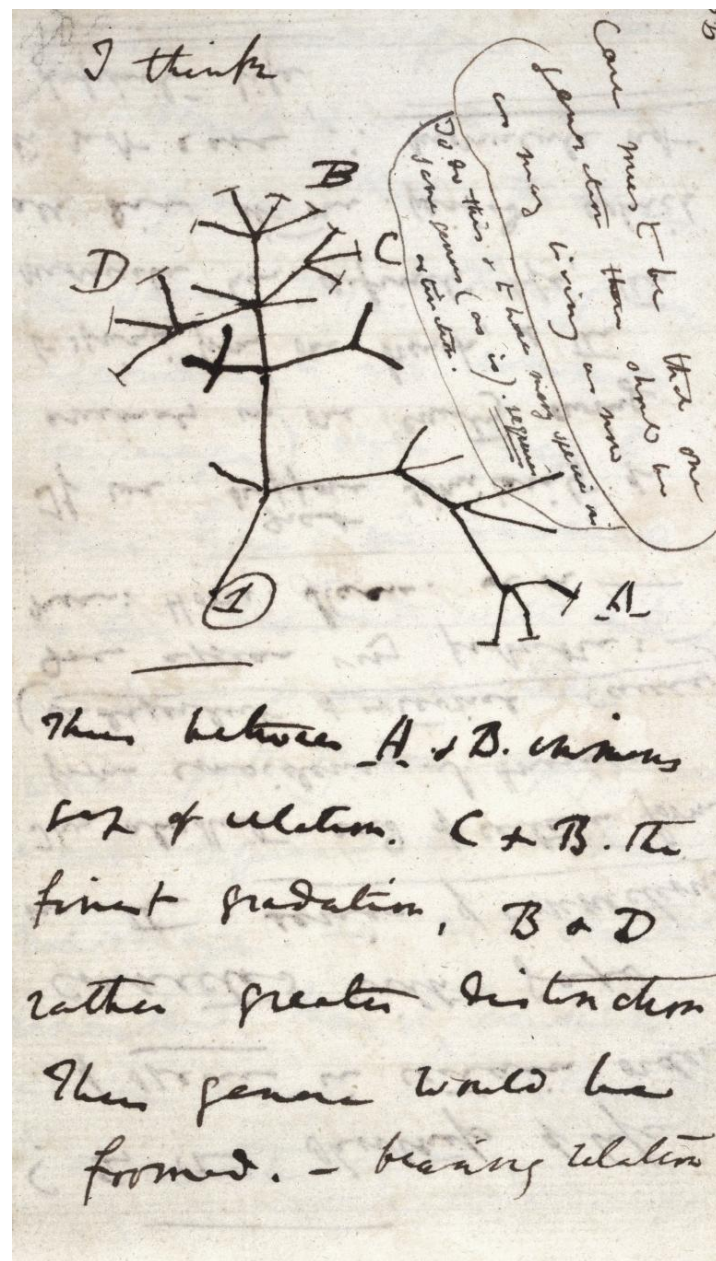 I think
Case must be that one
generation then should be
as many living as now
To do this & to have many species in
same genus (as is). requires
extinction.
B
D
C
1
A
Thus between A & B. immens
gap of relation. C & B. The
finest gradation, B & D
rather greater distinction
Thus genera would be
formed. – bearing relation